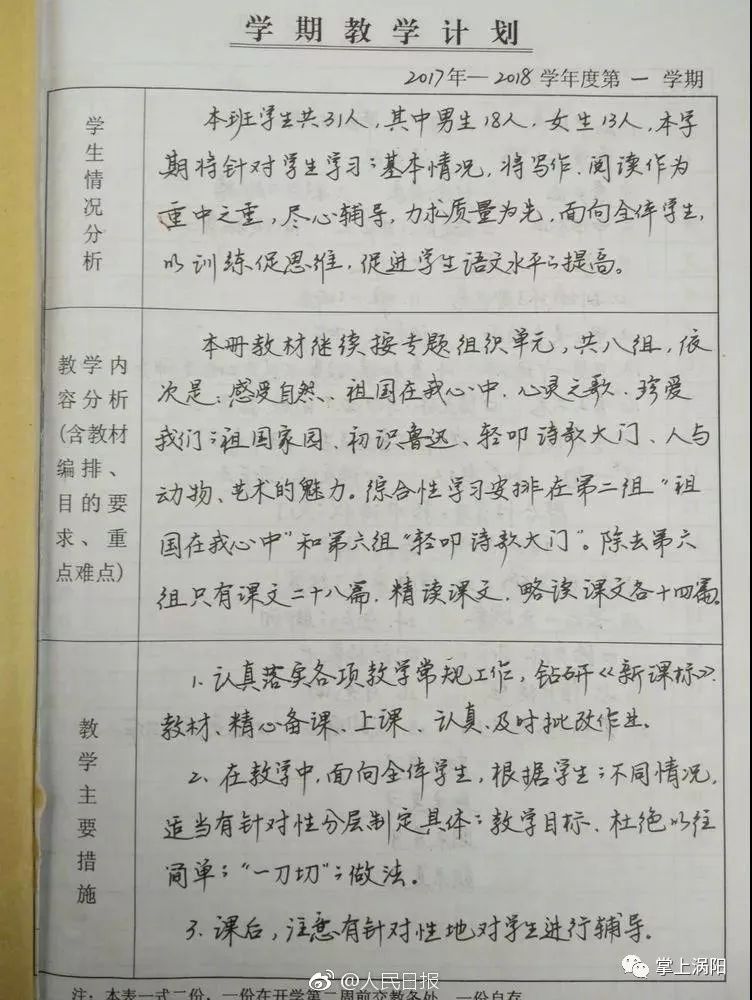 学期教学计划
2017年—2018学年度第一学期
学生情况分析
本班学生共31人,其中男生18人,女生13人,本学
期将针对学生学习的基本情况,将写作、阅读作为
重中之重,尽心辅导,力求质量为先,面向全体学生,
以训练促思维,促进学生语文水平的提高。
教学内
容分析
(含教材
编排、
目的要
求、重
点难点)
本册教材继续按专题组织单元,共八组,依
次是:感受自然、祖国在我心中、心灵之歌、珍爱
我们的祖国家园、初识鲁迅、轻叩诗歌大门、人与
动物、艺术的魅力。综合性学习安排在第二组“祖
国在我心中”和第六组“轻叩诗歌大门”。除去第六
组只有课文二十八篇,精读课文、略读课文各十四篇。
教学主要措施
1.认真落实各项教学常规工作,钻研《新课标》
教材、精心备课、上课、认真、及时批改作业。
2.在教学中,面向全体学生,根据学生的不同情况,
适当有针对性分层制定具体的教学目标、杜绝以往
简单的“一刀切”的做法。
3.课后,注意有针对性地对学生进行辅导。
注:本表一式二份,一份在开学第二周前交教务处,一份自存
@人民日报
掌上涡阳